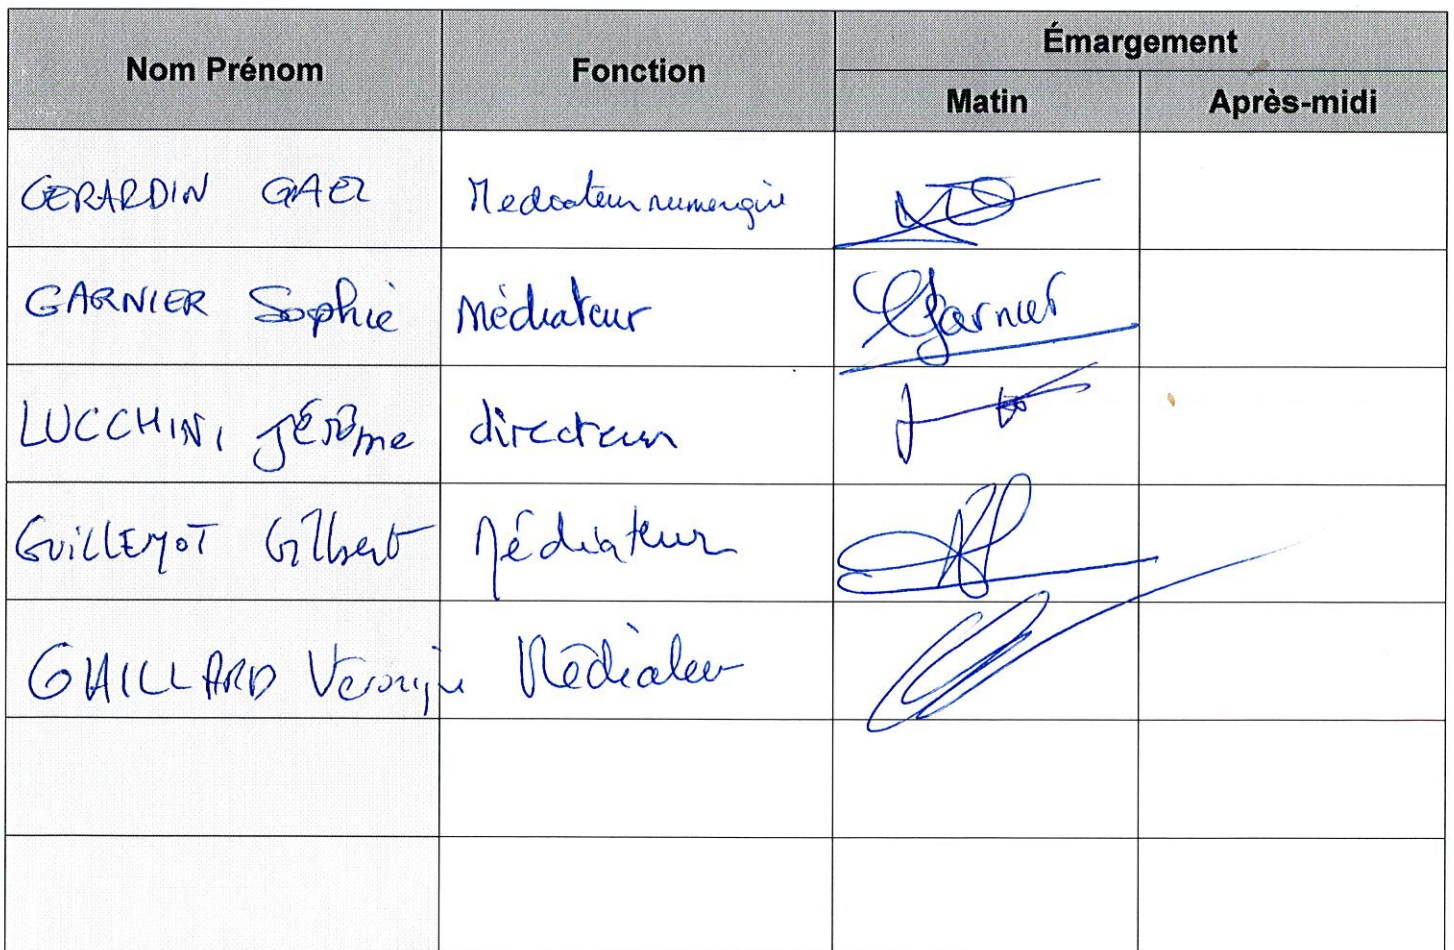 Nom Prénom Fonction Émargement
Matin Après-midi
GERARDIN GAEL Mediateur numerique
GARNIER Sophie Médiateur Garnier
LUCCHINI JÉRÔme directeur
GUiLLEMOT Gilbert Médiateur
GAILLARD Véronique Médiateur